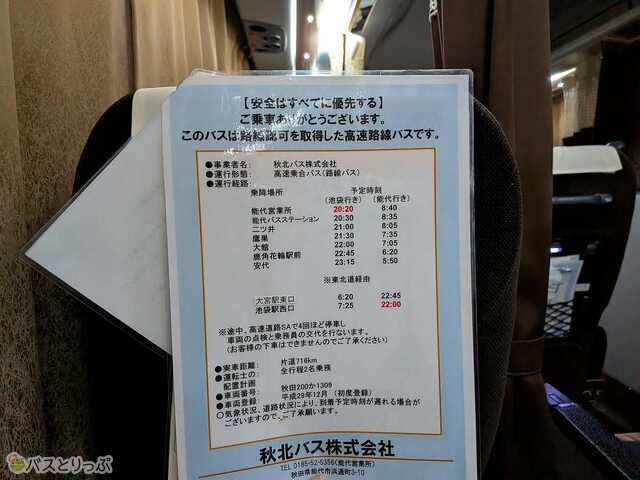 【安全はすべてに優先する】
ご乗車ありがとうございます。
このバスは路線認可を取得した高速路線バスです。
●事業者名： 秋北バス株式会社
●運行形態： 高速乗合バス（路線バス）
●運行経路：
乗降場所 予定時刻
（池袋行き）（能代行き）
能代営業所 20:20 8:40
能代バスステーション 20:30 8:35
二ツ井 21:00 8:05
鷹巣 21:30 7:35
大館 22:00 7:05
鹿角花輪駅前 22:45 6:20
安代 23:15 5:50
※東北道経由
大宮駅東口 6:20 22:45
池袋駅西口 7:25 22:00
※途中、高速道路SAで4回ほど停車し
車両の点検と乗務員の交代を行ないます。
（お客様の下車はできませんのでご了承ください）
●実車距離： 片道716km
●運転士の 全行程2名乗務
配置計画
●車両番号： 秋田200か1309
●車両登録： 平成29年12月 （初度登録）
○気象状況、道路状況により、到着予定時刻が遅れる場合が
ございますので、ご了承願います。
秋北バス株式会社
TEL 0185-52-5356（能代営業所）
秋田県能代市浜通町3-10
バスとりっぷ